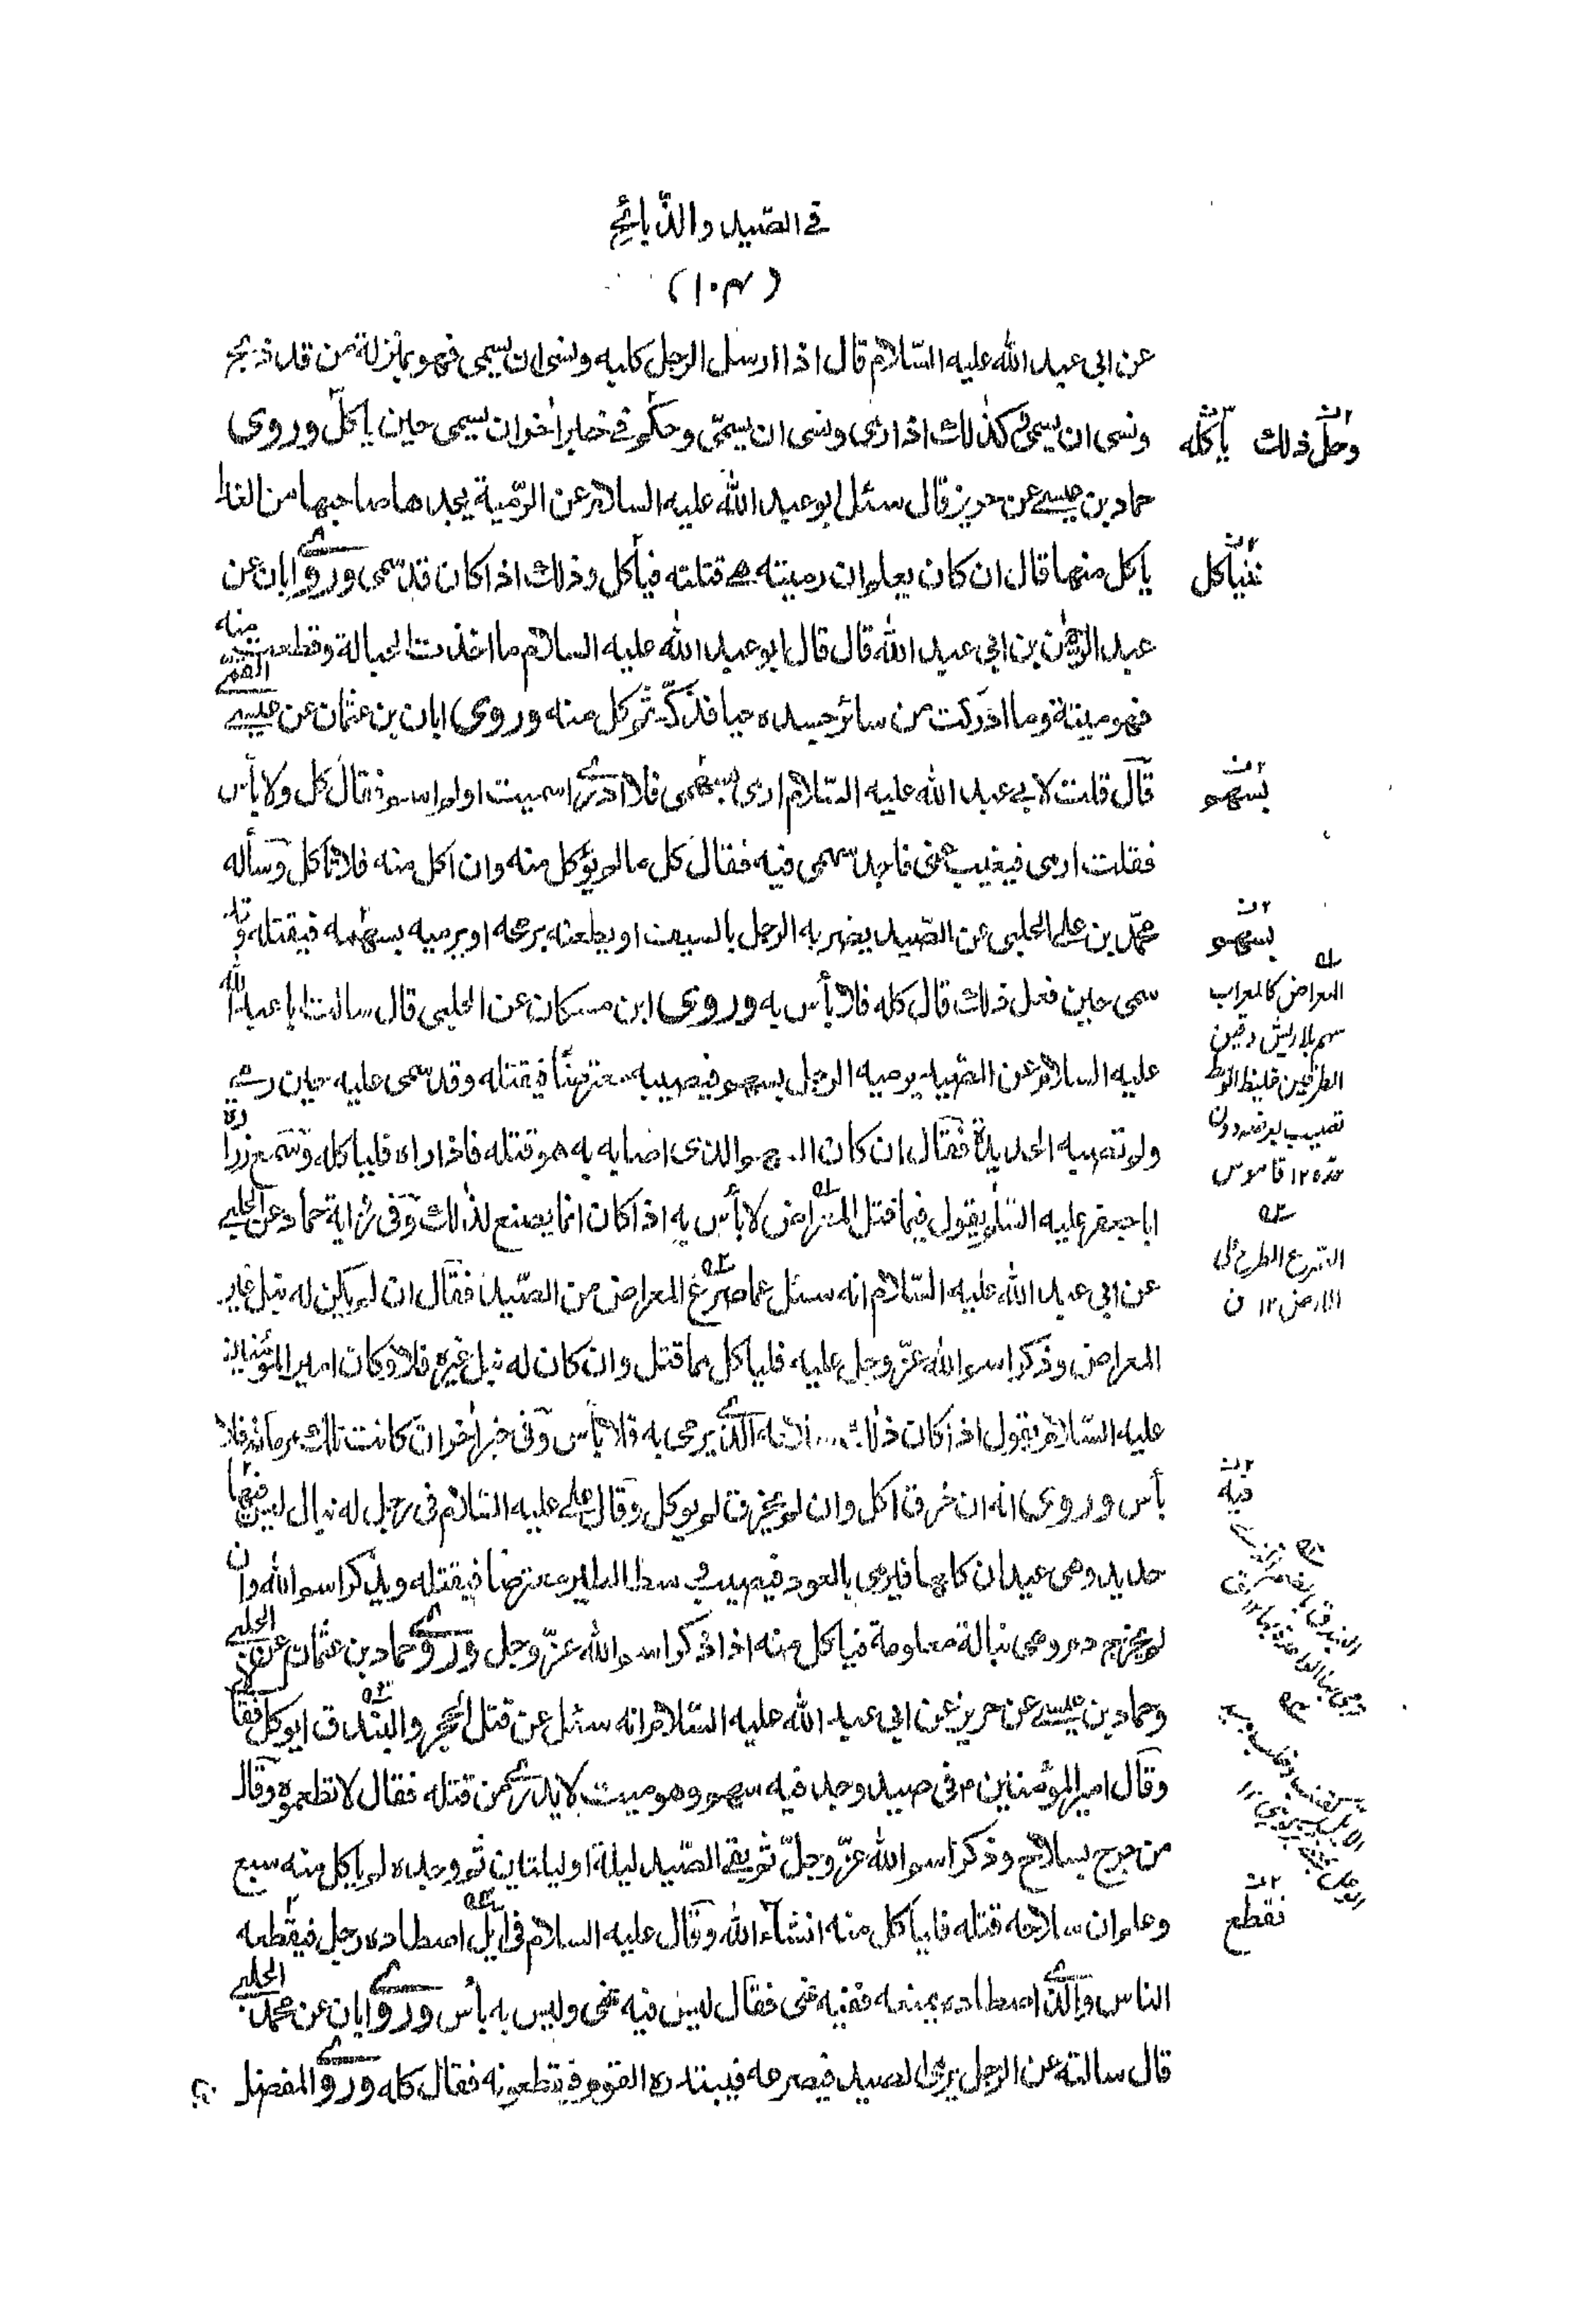 في الصّيد والذّبائح
(١٠٣)
عن ابي عبد الله عليه السّلام قال اذا ارسل الرجل كلبه ونسى ان يسمى فهو بمنزلة من قد ذبح
ونسى ان يسمى وكذلك اذا رمى ونسى ان يسمّى وحكم في خبر اخر ان يسمى حين ياكل وروى
وحلّ ذلك يأكله
حماد بن عيسى عن حريز قال سئل ابو عبد الله عليه السلام عن الرّمية يجدها صاحبها من الغد
ياكل منها قال ان كان يعلم ان رميته هي قتلته فيأكل وذلك اذا كان قد سمى وروى ابان عن
فليأكل
عبد الرحمٰن بن ابي عبد الله قال قال ابو عبد الله عليه السلام ما اخذت الحبالة وقطعت منه
فهو ميتة وما ادركت من سائر جسده حيا فذكّه ثم كل منه وروى ابان بن عثمان عن عيسى القمّي
قال قلت لابي عبد الله عليه السّلام ارمى بسهمى فلا ادرى اسميت او لم اسم فقال كل ولا بأس
بسهم
فقلت ارمى فيغيب عنى فاجد سهمى فيه فقال كل ما لم يؤكل منه وان اكل منه فلا تأكل وسأله
محمّد بن علي الحلبي عن الصّيد يضربه الرجل بالسيف او يطعنه برمحه او يرميه بسهمه فيقتله وقد
بسهم
سمى حين فعل ذلك قال كله فلا بأس به وروى ابن مسكان عن الحلبي قال سالت ابا عبد الله
المعراض كالمحراب
سهم بلا ريش دقيق
عليه السلام عن الصّيد يرميه الرجل بسهم فيصيبه معترضًا فيقتله وقد سمى عليه حين رمى
الطرفين غليظ الوسط
ولم تصبه الحديدة فقال ان كان السهم الذى اصابه به هو قتله فاذا راه فلياكله وسمع زرارة
تصيب بعرضه دون
حدّه ١٢ قاموس
ابا جعفر عليه السّلم يقول فيما قتل المعراض لا بأس به اذا كان انما يصنع لذلك وفي رواية حماد عن الحلبي
عن ابي عبد الله عليه السّلام انه سئل عما صرع المعراض من الصّيد فقال ان لم يكن له نبل غير
الصّرع الطرح على
الارض ١٢ ن
المعراض وذكر اسم الله عزّ وجل عليه فلياكل مما قتل وان كان له نبل غيره فلا وكان امير المؤمنين
عليه السّلام يقول اذا كان ذلك سلاحه الذى يرمى به فلا بأس وفي خبر اخر ان كانت تلك مرماته فلا
بأس وروى انه ان خرق اكل وان لم يخرق لم يوكل وقال علي عليه السّلام في رجل له نبال ليس فيها
فيه
حديد وهى عيدان كلها فيرمى بالعود فيصيب وسط الطير معترضًا فيقتله ويذكر اسم الله وان
لم يخرج دم وهى نبالة معلومة فياكل منه اذا ذكر اسم الله عزّ وجل وروى حماد بن عثمان عن الحلبي
وحماد بن عيسى عن حريز عن ابي عبد الله عليه السّلام انه سئل عن قتل الحجر والبندق ايوكل فقا
وقال امير المؤمنين م في صيد وجد فيه سهم وهو ميت لا يدرى من قتله فقال لا تطعموه وقال
من جرح بسلاح وذكر اسم الله عزّ وجلّ ثم بقى الصّيد ليلة او ليلتين ثم وجده لم ياكل منه سبع
وعلم ان سلاحه قتله فلياكل منه انشاء الله وقال عليه السلام في ايل اصطاده رجل فيقطعه
فقطع
الناس والذى اصطاده يمنعه ففيه نهى فقال ليس فيه نهى وليس به بأس وروى ابان عن محمد الحلبي
قال سالته عن الرجل يرمى الصيد فيصرعه فيبتدره القوم فيقطعونه فقال كله وروى المفضل